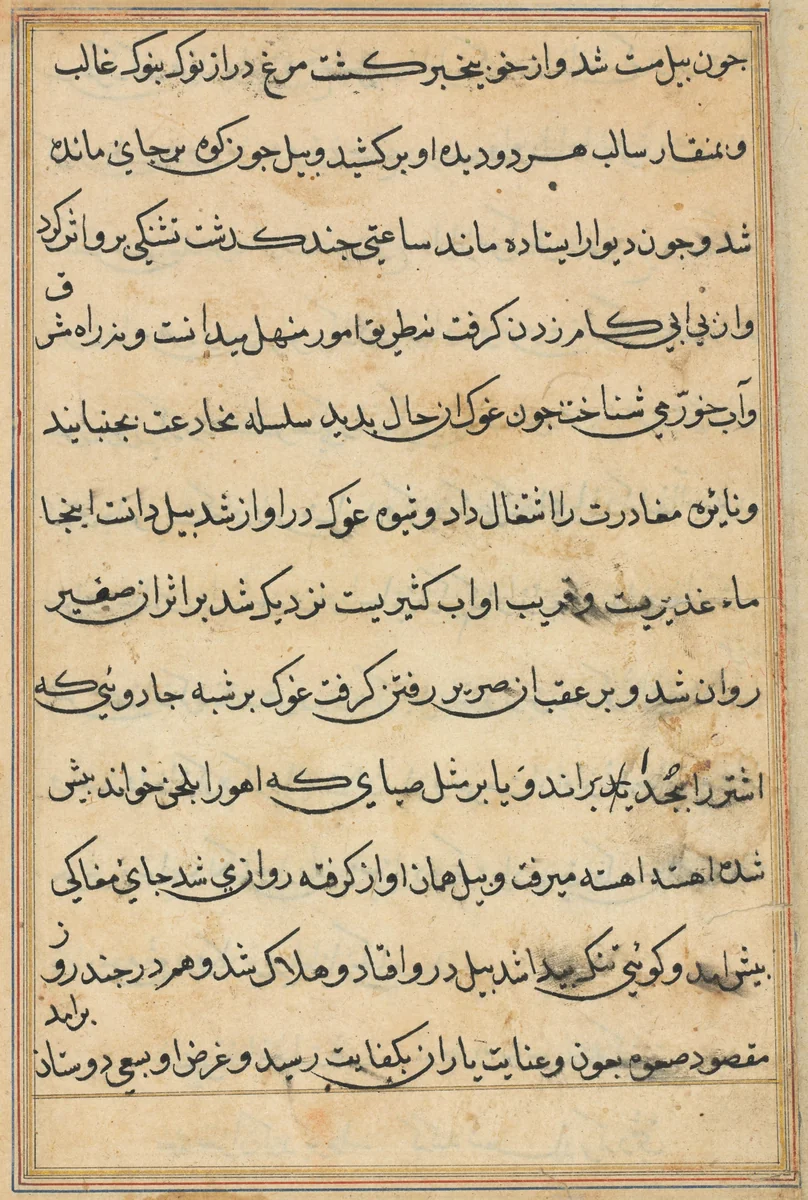 جون بیل مست شد و از خود بیخبر کشت مرغ دراز نوک بنوک غالب
و بمنقار سالب هر دو دیده او بر کشید و بیل جون کوه بر جای مانده
شد و جون دیوار ایستاده ماند ساعتی جند کدشت تشنکی برو اثر کرد
و از بی ابی کام زدن کرفت نه طریق امور منهل میدانست و نه راه مشرق
و آب خورد می شناخت جون غوک ان حال بدید سلسله مخادعت بجنبانید
و نایره مغادرت را اشتغال داد و شیوه غوک در اواز شد بیل دانست اینجا
ماء غدیرست و قریب او اب کثیریست نزدیک شد بر اثر ان صفیر
روان شد و بر عقب ان صریر رفتن کرفت غوک بر شبه جادوئی که
اشتر را بحدا براند و یا بر مثل صیای که اهو را بلحن خواند بیش
شده اهسته اهسته میرفت و بیل همان اواز کرفته روازی شد جای مغاکی
بیش امد و کوئی تنک بیدا شد بیل درو افتاد و هلاک شد و هم در جند روز
مقصود صعوه بعون و عنایت یاران بکفایت رسید و غرض او بسعی دوستان برامد